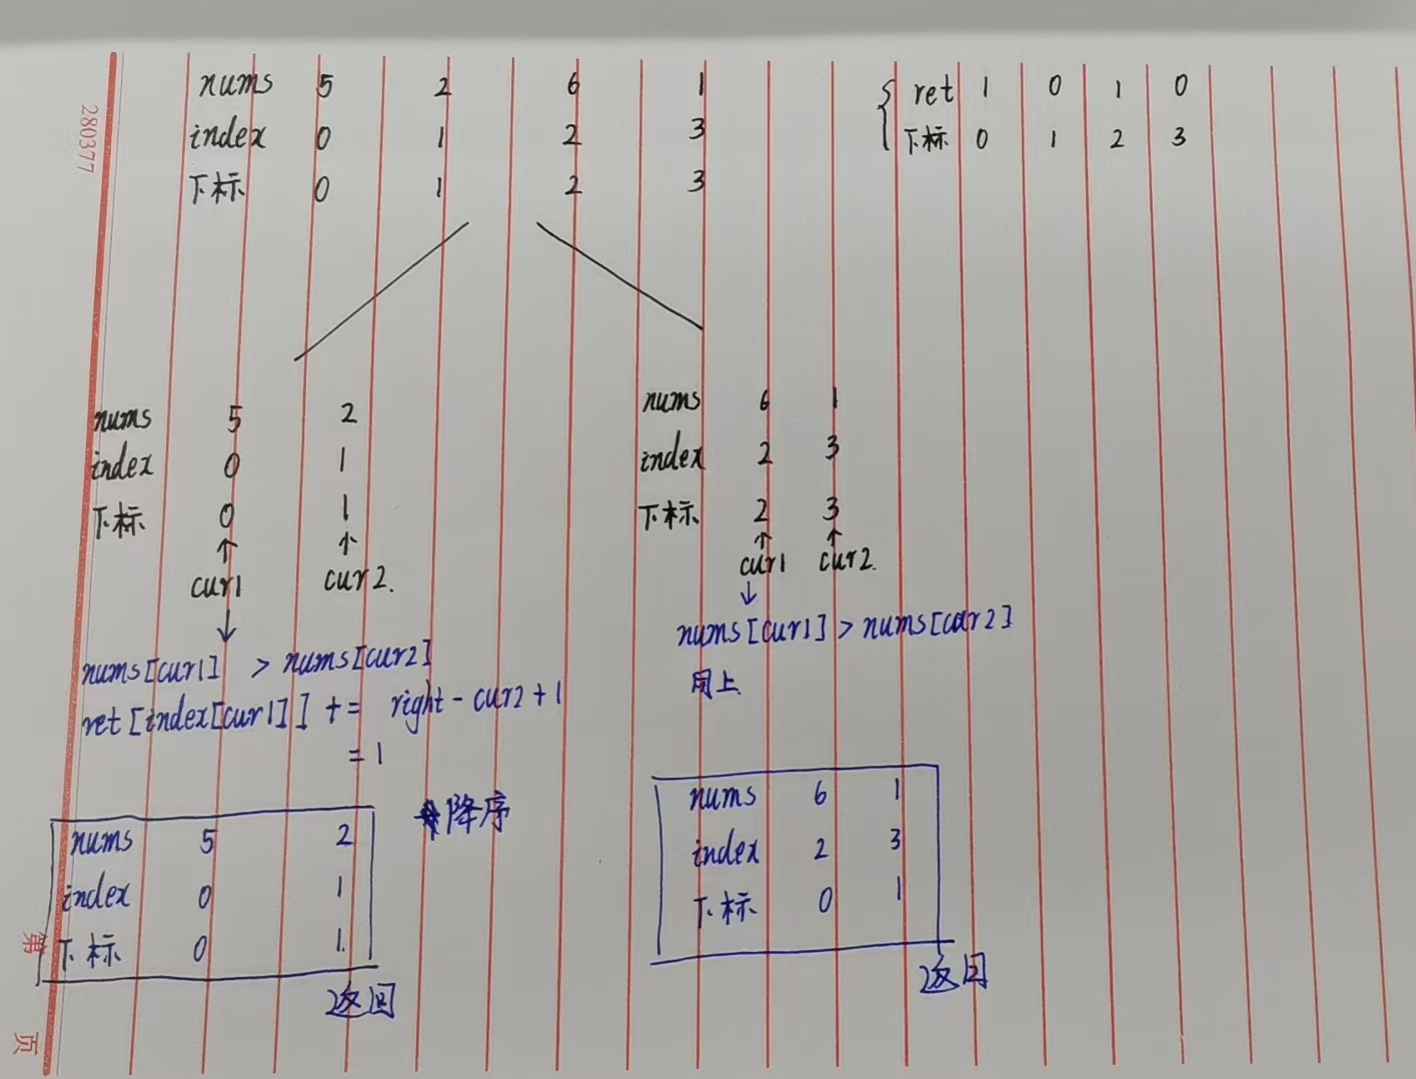 nums 5 2 6 1
index 0 1 2 3
下标 0 1 2 3
ret 1 0 1 0
下标 0 1 2 3
280377
nums 5 2
index 0 1
下标 0 1
cur1 cur2.
nums[cur1] > nums[cur2]
ret[index[cur1]] += right - cur2 + 1
= 1
降序
nums 5 2
index 0 1
下标 0 1.
返回
nums 6 1
index 2 3
下标 2 3
cur1 cur2.
nums[cur1] > nums[cur2]
同上
nums 6 1
index 2 3
下标 0 1
返回
第
页